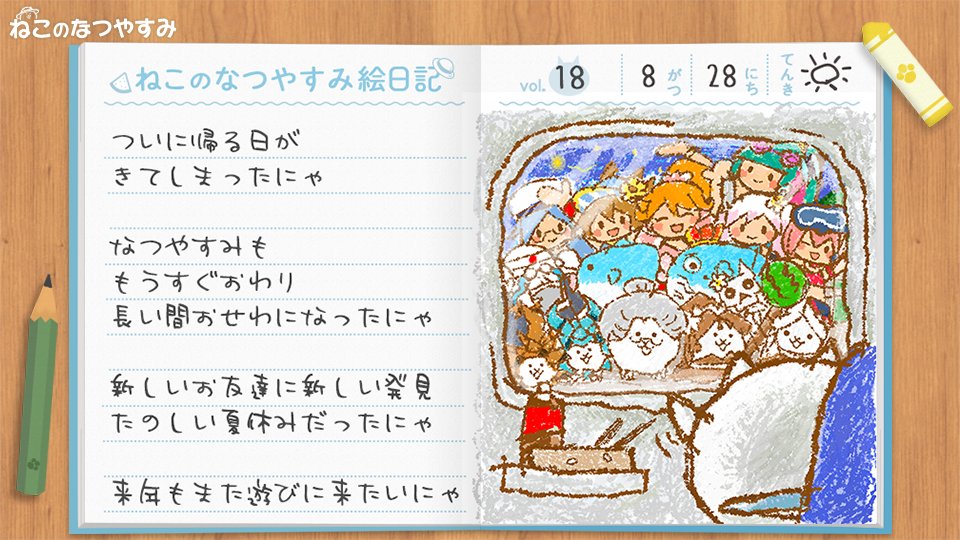 ねこのなつやすみ
ねこのなつやすみ絵日記
vol. 18 8 がつ 28 にち てんき
ついに帰る日が
きてしまったにゃ
なつやすみも
もうすぐおわり
長い間おせわになったにゃ
新しいお友達に新しい発見
たのしい夏休みだったにゃ
来年もまた遊びに来たいにゃ